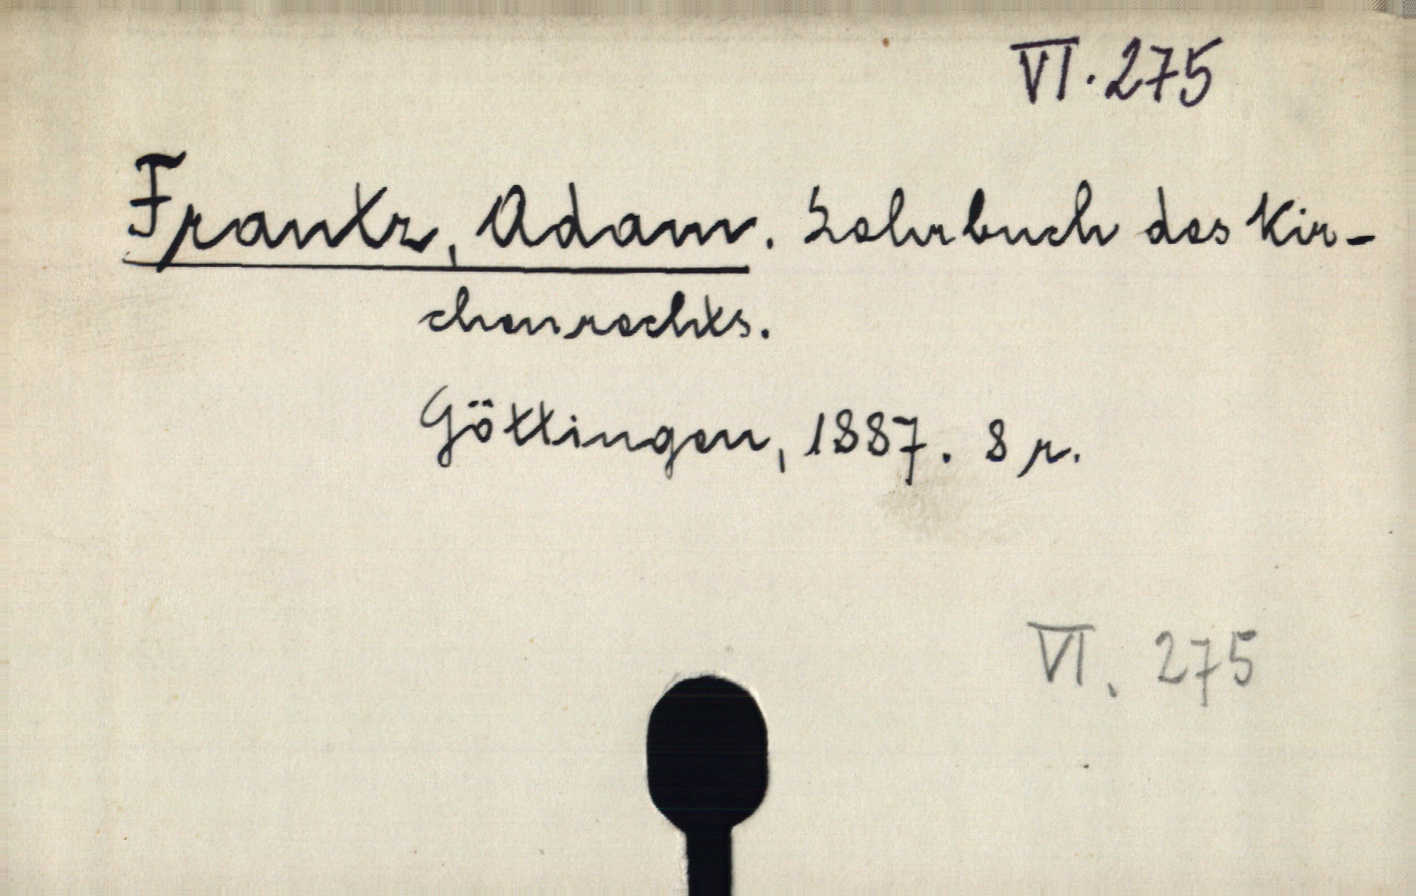 VI. 275
Frantz, Adam. Lehrbuch des Kir-
chenrechts.
Göttingen, 1887. 8 r.
VI. 275